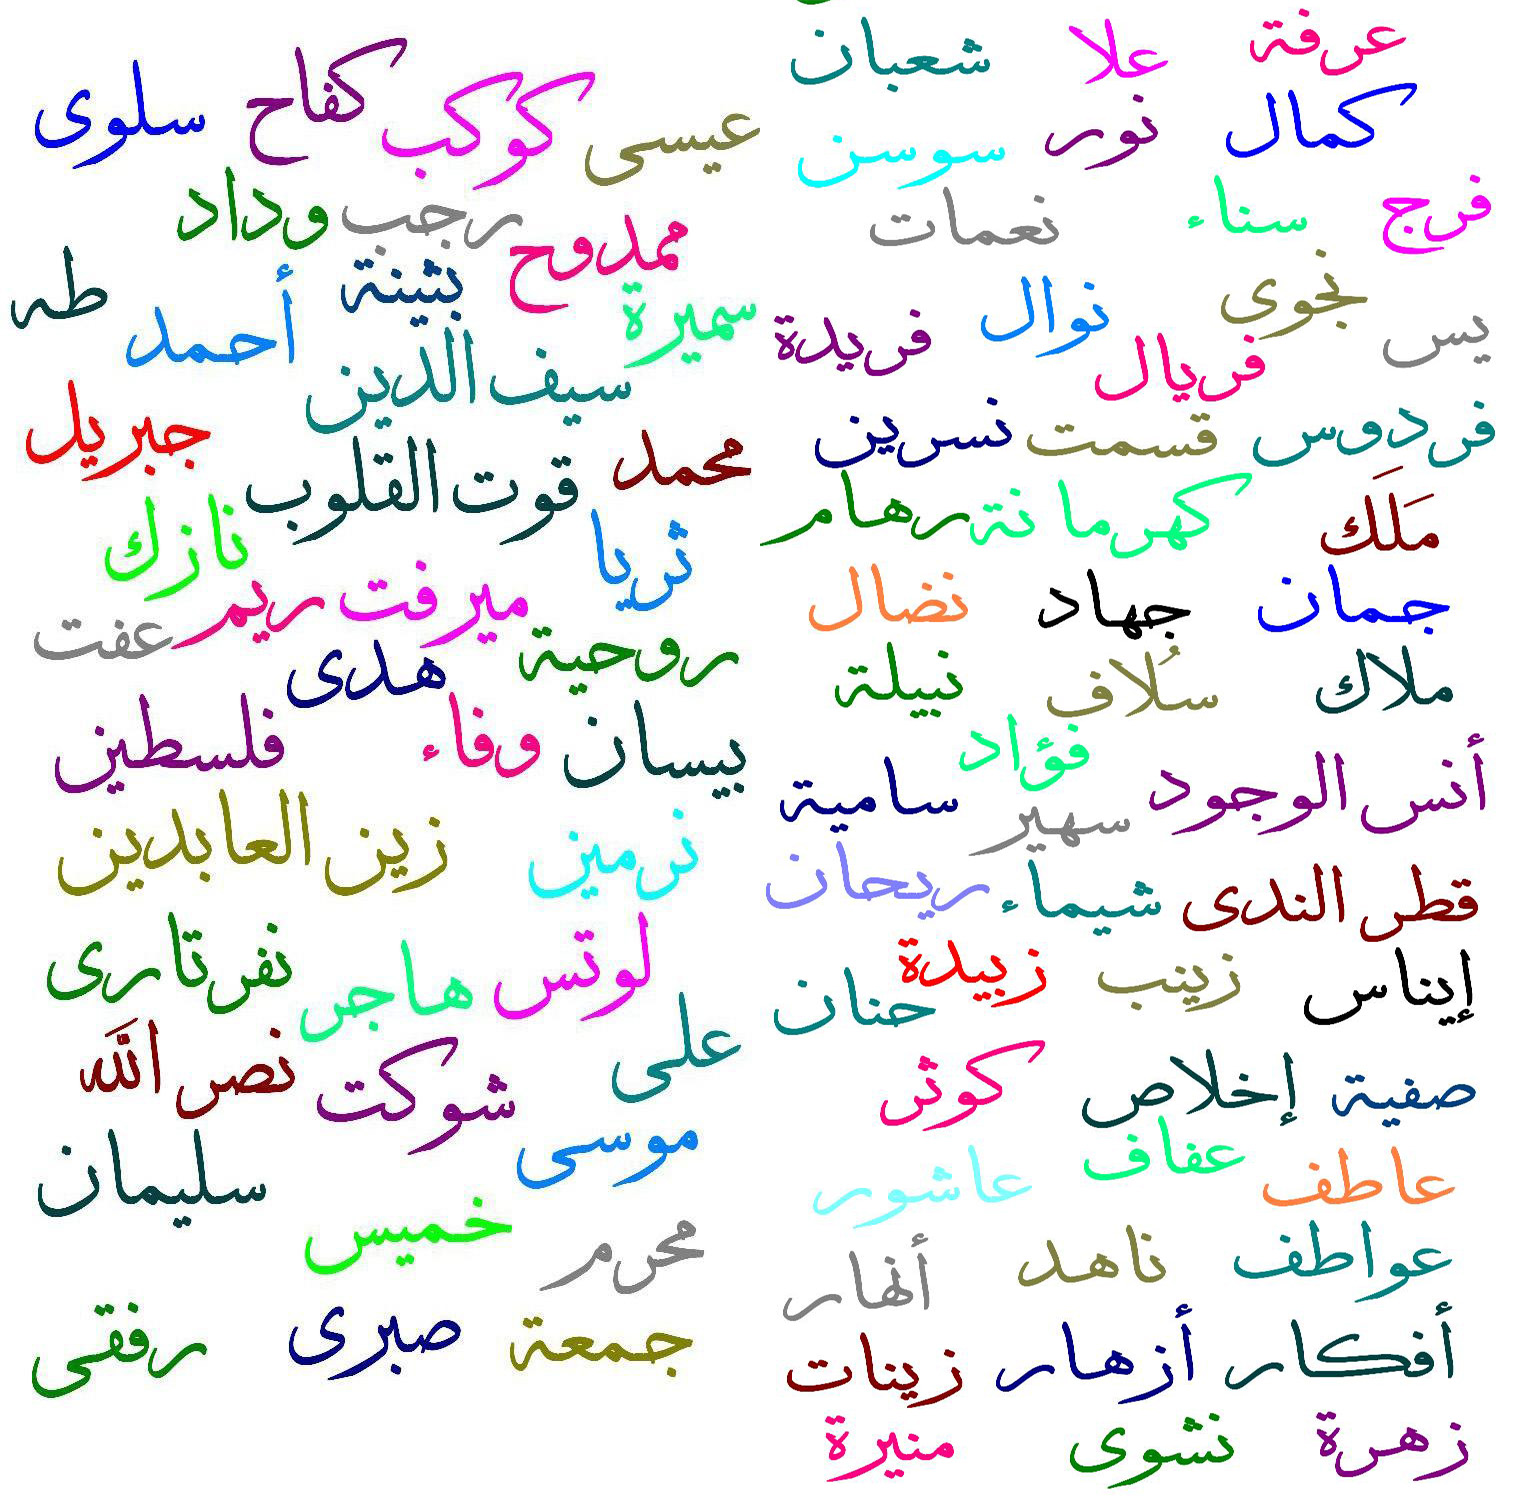 عرفة علا شعبان
كمال نور سوسن
فرج سناء نعمات
يس نجوى نوال فريدة
فريال
فردوس قسمت نسرين
مَلَك كهرمانة رهام
جمان جهاد نضال
ملاك سُلاف نبيلة
فؤاد
أنس الوجود سامية
سهير
قطر الندى شيماء ريحان
إيناس زينب زبيدة حنان
صفية إخلاص كوثر
عاطف عفاف عاشور
عواطف ناهد أنهار
أفكار أزهار زينات
زهرة نشوى منيرة
عيسى كوكب كفاح سلوى
ممدوح رجب وداد
سميرة بثينة أحمد طه
سيف الدين
محمد قوت القلوب جبريل
ثريا نازك
ميرفت ريم عفت
روحية هدى
بيسان وفاء فلسطين
نرمين زين العابدين
لوتس هاجر نفرتارى
على شوكت نصر الله
موسى سليمان
محرم خميس
جمعة صبرى رفقى